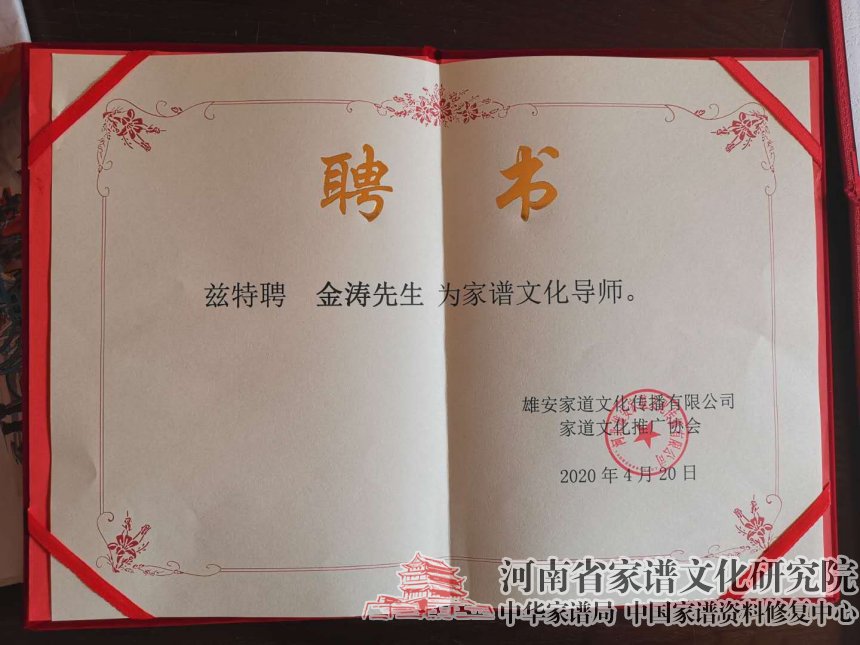 聘 书
兹特聘 金涛先生 为家谱文化导师。
雄安家道文化传播有限公司
家道文化推广协会
2020年4月20日
河南省家谱文化研究院
中华家谱局 中国家谱资料修复中心